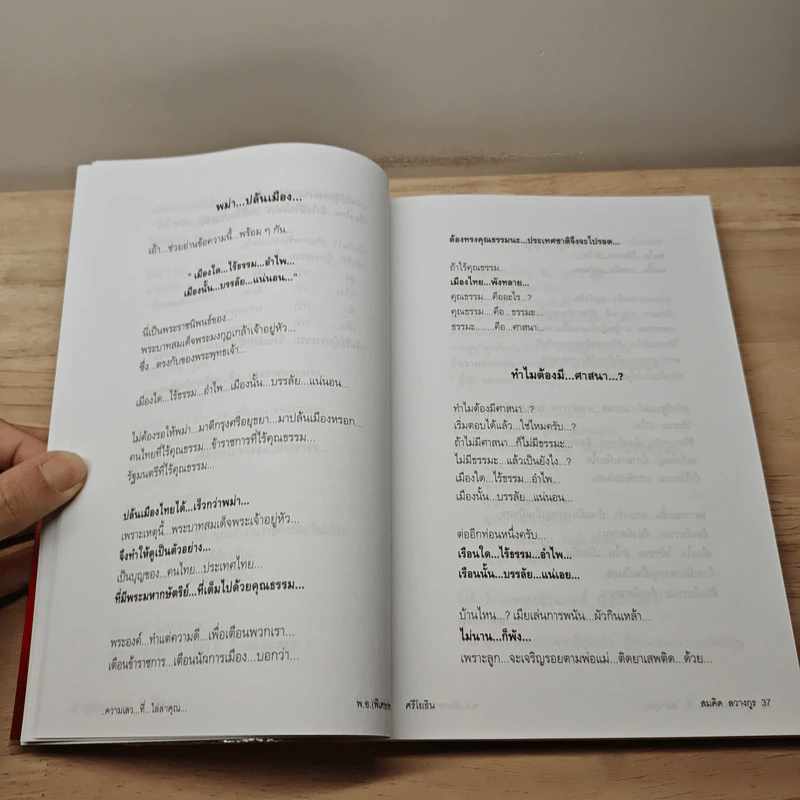 พม่า...ปล้นเมือง...
เอ้า...ช่วยอ่านข้อความนี้...พร้อม ๆ กัน...
" เมืองใด...ไร้ธรรม...อำไพ...
เมืองนั้น...บรรลัย...แน่นอน..."
นี่เป็นพระราชนิพนธ์ของ...
พระบาทสมเด็จพระมงกุฎเกล้าเจ้าอยู่หัว...
ซึ่ง...ตรงกับของพระพุทธเจ้า...
เมืองใด...ไร้ธรรม...อำไพ...เมืองนั้น...บรรลัย...แน่นอน...
ไม่ต้องรอให้พม่า...มาตีกรุงศรีอยุธยา...มาปล้นเมืองหรอก...
คนไทยที่ไร้คุณธรรม...ข้าราชการที่ไร้คุณธรรม...
รัฐมนตรีที่ไร้คุณธรรม...
ปล้นเมืองไทยได้...เร็วกว่าพม่า...
เพราะเหตุนี้...พระบาทสมเด็จพระเจ้าอยู่หัว...
จึงทำให้ดูเป็นตัวอย่าง...
เป็นบุญของ...คนไทย...ประเทศไทย...
ที่มีพระมหากษัตริย์...ที่เต็มไปด้วยคุณธรรม...
พระองค์...ทำแต่ความดี...เพื่อเตือนพวกเรา...
เตือนข้าราชการ...เตือนนักการเมือง...บอกว่า...
...ความเลว...ที่...ไล่ล่าคุณ...
พ.อ.(พิเศษ)
ต้องทรงคุณธรรมนะ...ประเทศชาติจึงจะไปรอด...
ถ้าไร้คุณธรรม...
เมืองไทย...พังทลาย...
คุณธรรม...คืออะไร...?
คุณธรรม...คือ...ธรรมะ...
ธรรมะ........คือ...ศาสนา...
ทำไมต้องมี...ศาสนา...?
ทำไมต้องมีศาสนา...?
เริ่มตอบได้แล้ว...ใช่ไหมครับ...?
ถ้าไม่มีศาสนา...ก็ไม่มีธรรมะ...
ไม่มีธรรมะ...แล้วเป็นยังไง...?
เมืองใด...ไร้ธรรม...อำไพ...
เมืองนั้น...บรรลัย...แน่นอน...
ต่ออีกท่อนหนึ่งครับ...
เรือนใด...ไร้ธรรม...อำไพ...
เรือนนั้น...บรรลัย...แน่เอย...
บ้านไหน...? เมียเล่นการพนัน...ผัวกินเหล้า...
ไม่นาน...ก็พัง...
เพราะลูก...จะเจริญรอยตามพ่อแม่...ติดยาเสพติด...ด้วย...
ศรีโยธิน
สมคิด ลวางกูร 37